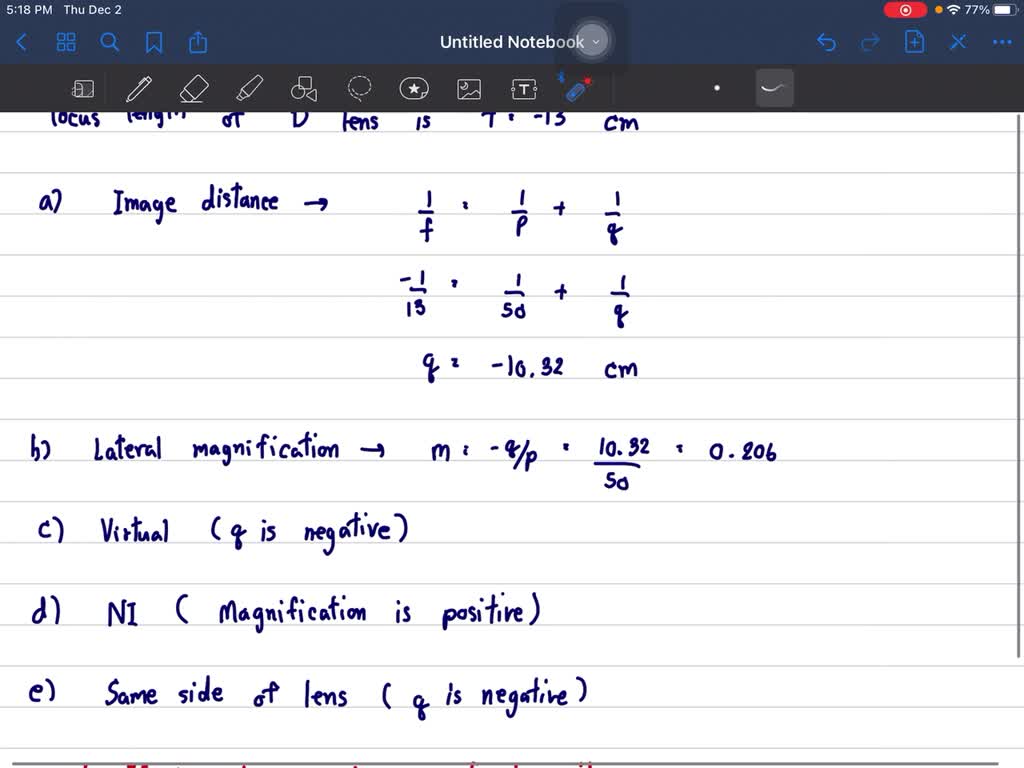 5:18 PM Thu Dec 2
77%
Untitled Notebook
T
focus length of D lens is f = -13 cm
a) Image distance → 1/f = 1/p + 1/q
-1/13 = 1/50 + 1/q
q = -10.32 cm
b) Lateral magnification → m = -q/p = 10.32/50 = 0.206
c) Virtual (q is negative)
d) NI (Magnification is positive)
e) Same side of lens (q is negative)